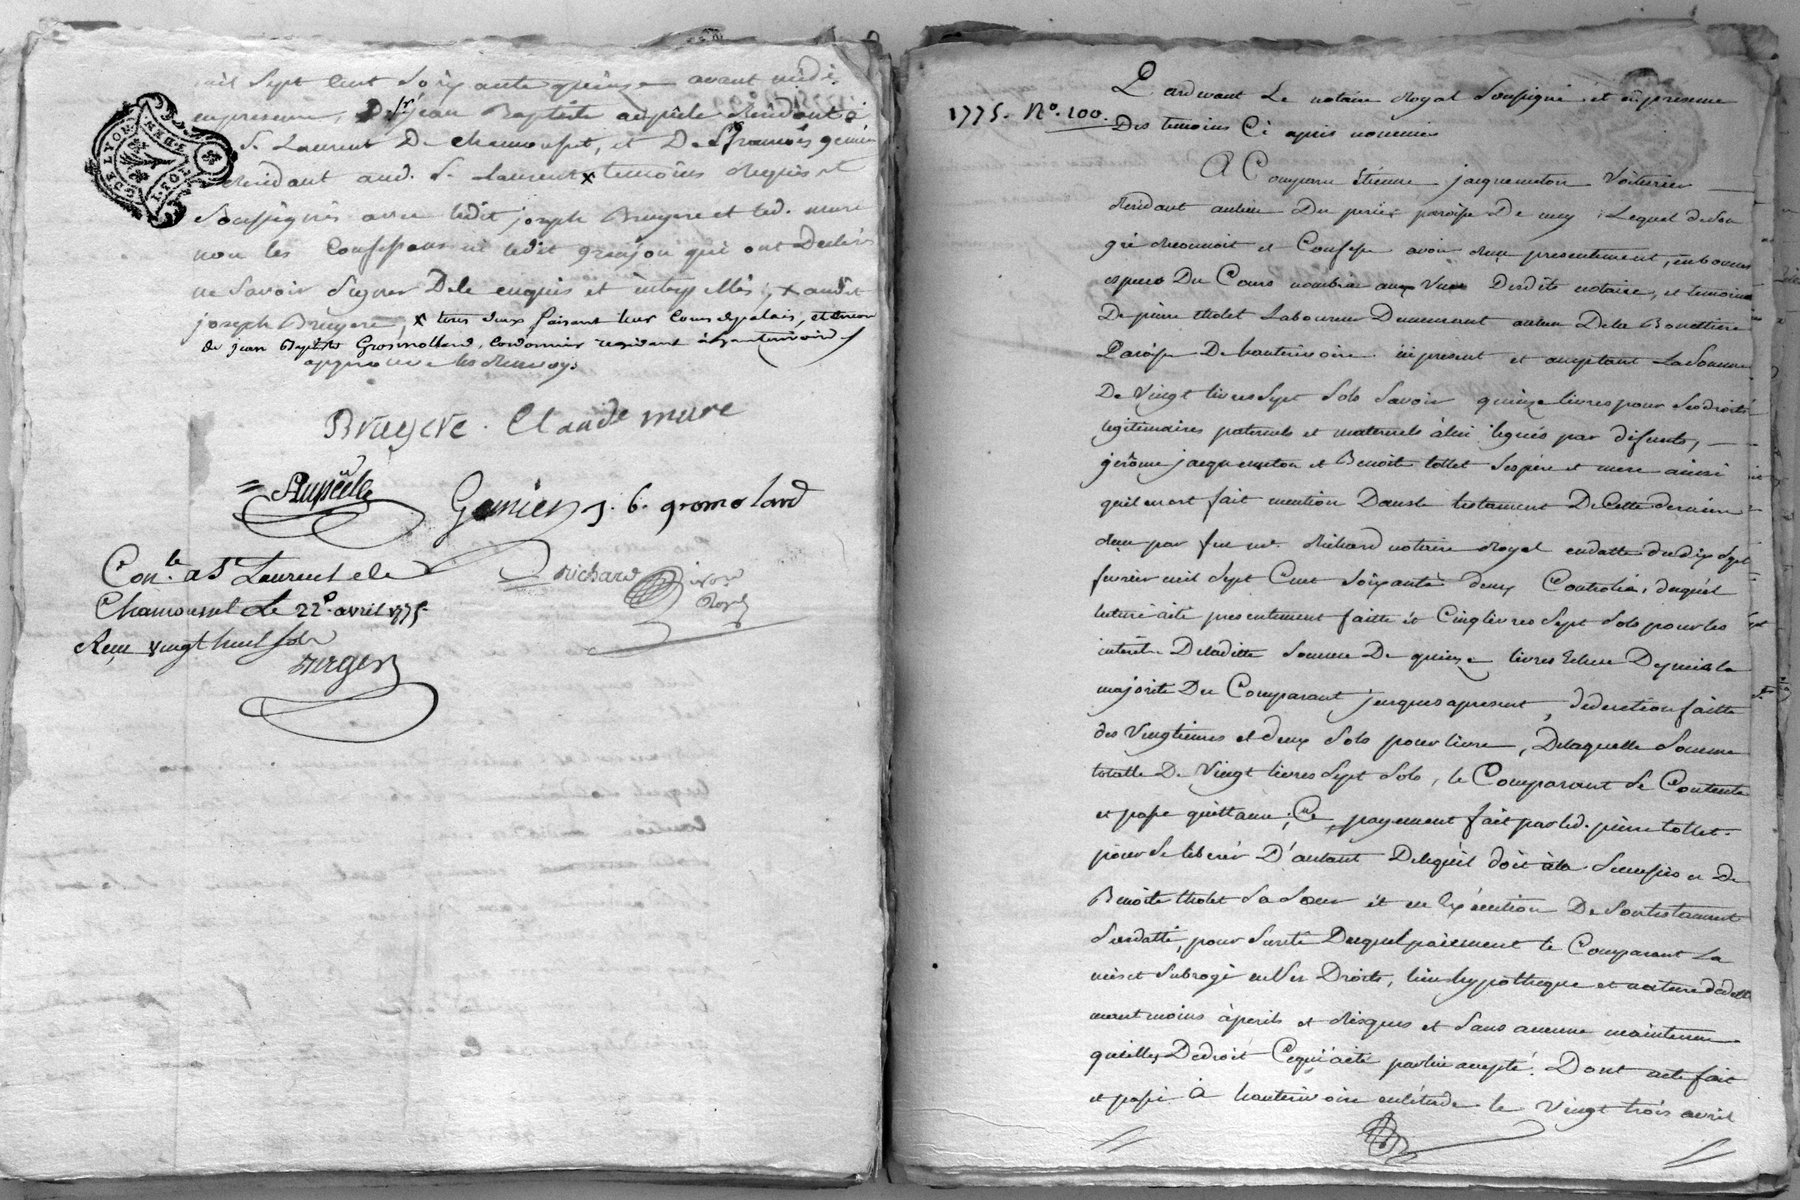 mil sept cent soixante quinze avant midi
en presence, De Sr jean Baptiste aupicle Residant à
St Laurent De chamousset, et De Sr francois genin
Residant aud. St Laurent x temoins Requis et
Soussignés avec ledit joseph Bruyere et led. mure
non les confessans ni ledit granjon qui ont Declaré
ne Savoir Signer De le enquis et interpellés, x audit
joseph Bruyere, x tous deux faisant leur cours de palais, et encore
de jean Baptiste Gromolard, cordonnier residant à hauterivoire
approuvé les Renvoys
Bruyere. Claude mure
Aupicle Genien J. b. gromolard
Con.le a St Laurent de
Chamousset Le 22e avril 1775
Reçu vingt huit sols
Richard notaire Royal
DE LYON
1775. No. 100.
Pardevant Le notaire Royal Soussigné et en presence
Des temoins Ci après nommés
A Comparu Etienne jacquemeton Voiturier
Residant au lieu Du perié paroisse De mey, Lequel de Son
gré Reconnoit et Confesse avoir Reçu presentement, en bonnes
especes Du Cours nombrée aux Vues Desdits notaire, et temoins
De pierre tholet Laboureur Demeurant au lieu De la Bonettiere
Paroisse De hauterivoire ici present et acceptant La Somme
De Vingt livres Sept Sols Savoir quinze livres pour Ses droits
legitimaires paternels et maternels à lui legués par défunts,
jerôme jacquemeton et Benoite tollet Ses père et mere ainsi
qu'il en est fait mention Dans le testament De Cette derniere
Reçu par feu me. Richard notaire Royal en datte du dix Sept
fevrier mil Sept Cent Soixante deux Controlé, duquel
lecture a été presentement faitte et Cinq livres Sept Sols pour les
interêts De laditte Somme De quinze livres Echus Depuis la
majorité Du Comparant jusques apresent, deduction faitte
des Vingtiemes et deux Sols pour livre, De laquelle Somme
totalle De Vingt livres Sept Sols, le Comparant Se Contente
et passe quittance; Ce payement fait par led. pierre tollet
pour Se liberér D'autant De ce qu'il doit à la Succession De
Benoite tholet Sa Sœur et en Exécution De Son testament
Susdatté, pour Sureté Duquel païement le Comparant La
mis et Subrogé en Ses Droits, lieu, hypotheque et nature de dette
neantmoins à perils et Risques et Sans aucune maintenue
qu'elles De droit Ce qui a été par lui accepté. Dont acte fait
et passé à hauterivoire en l'étude le Vingt trois avril